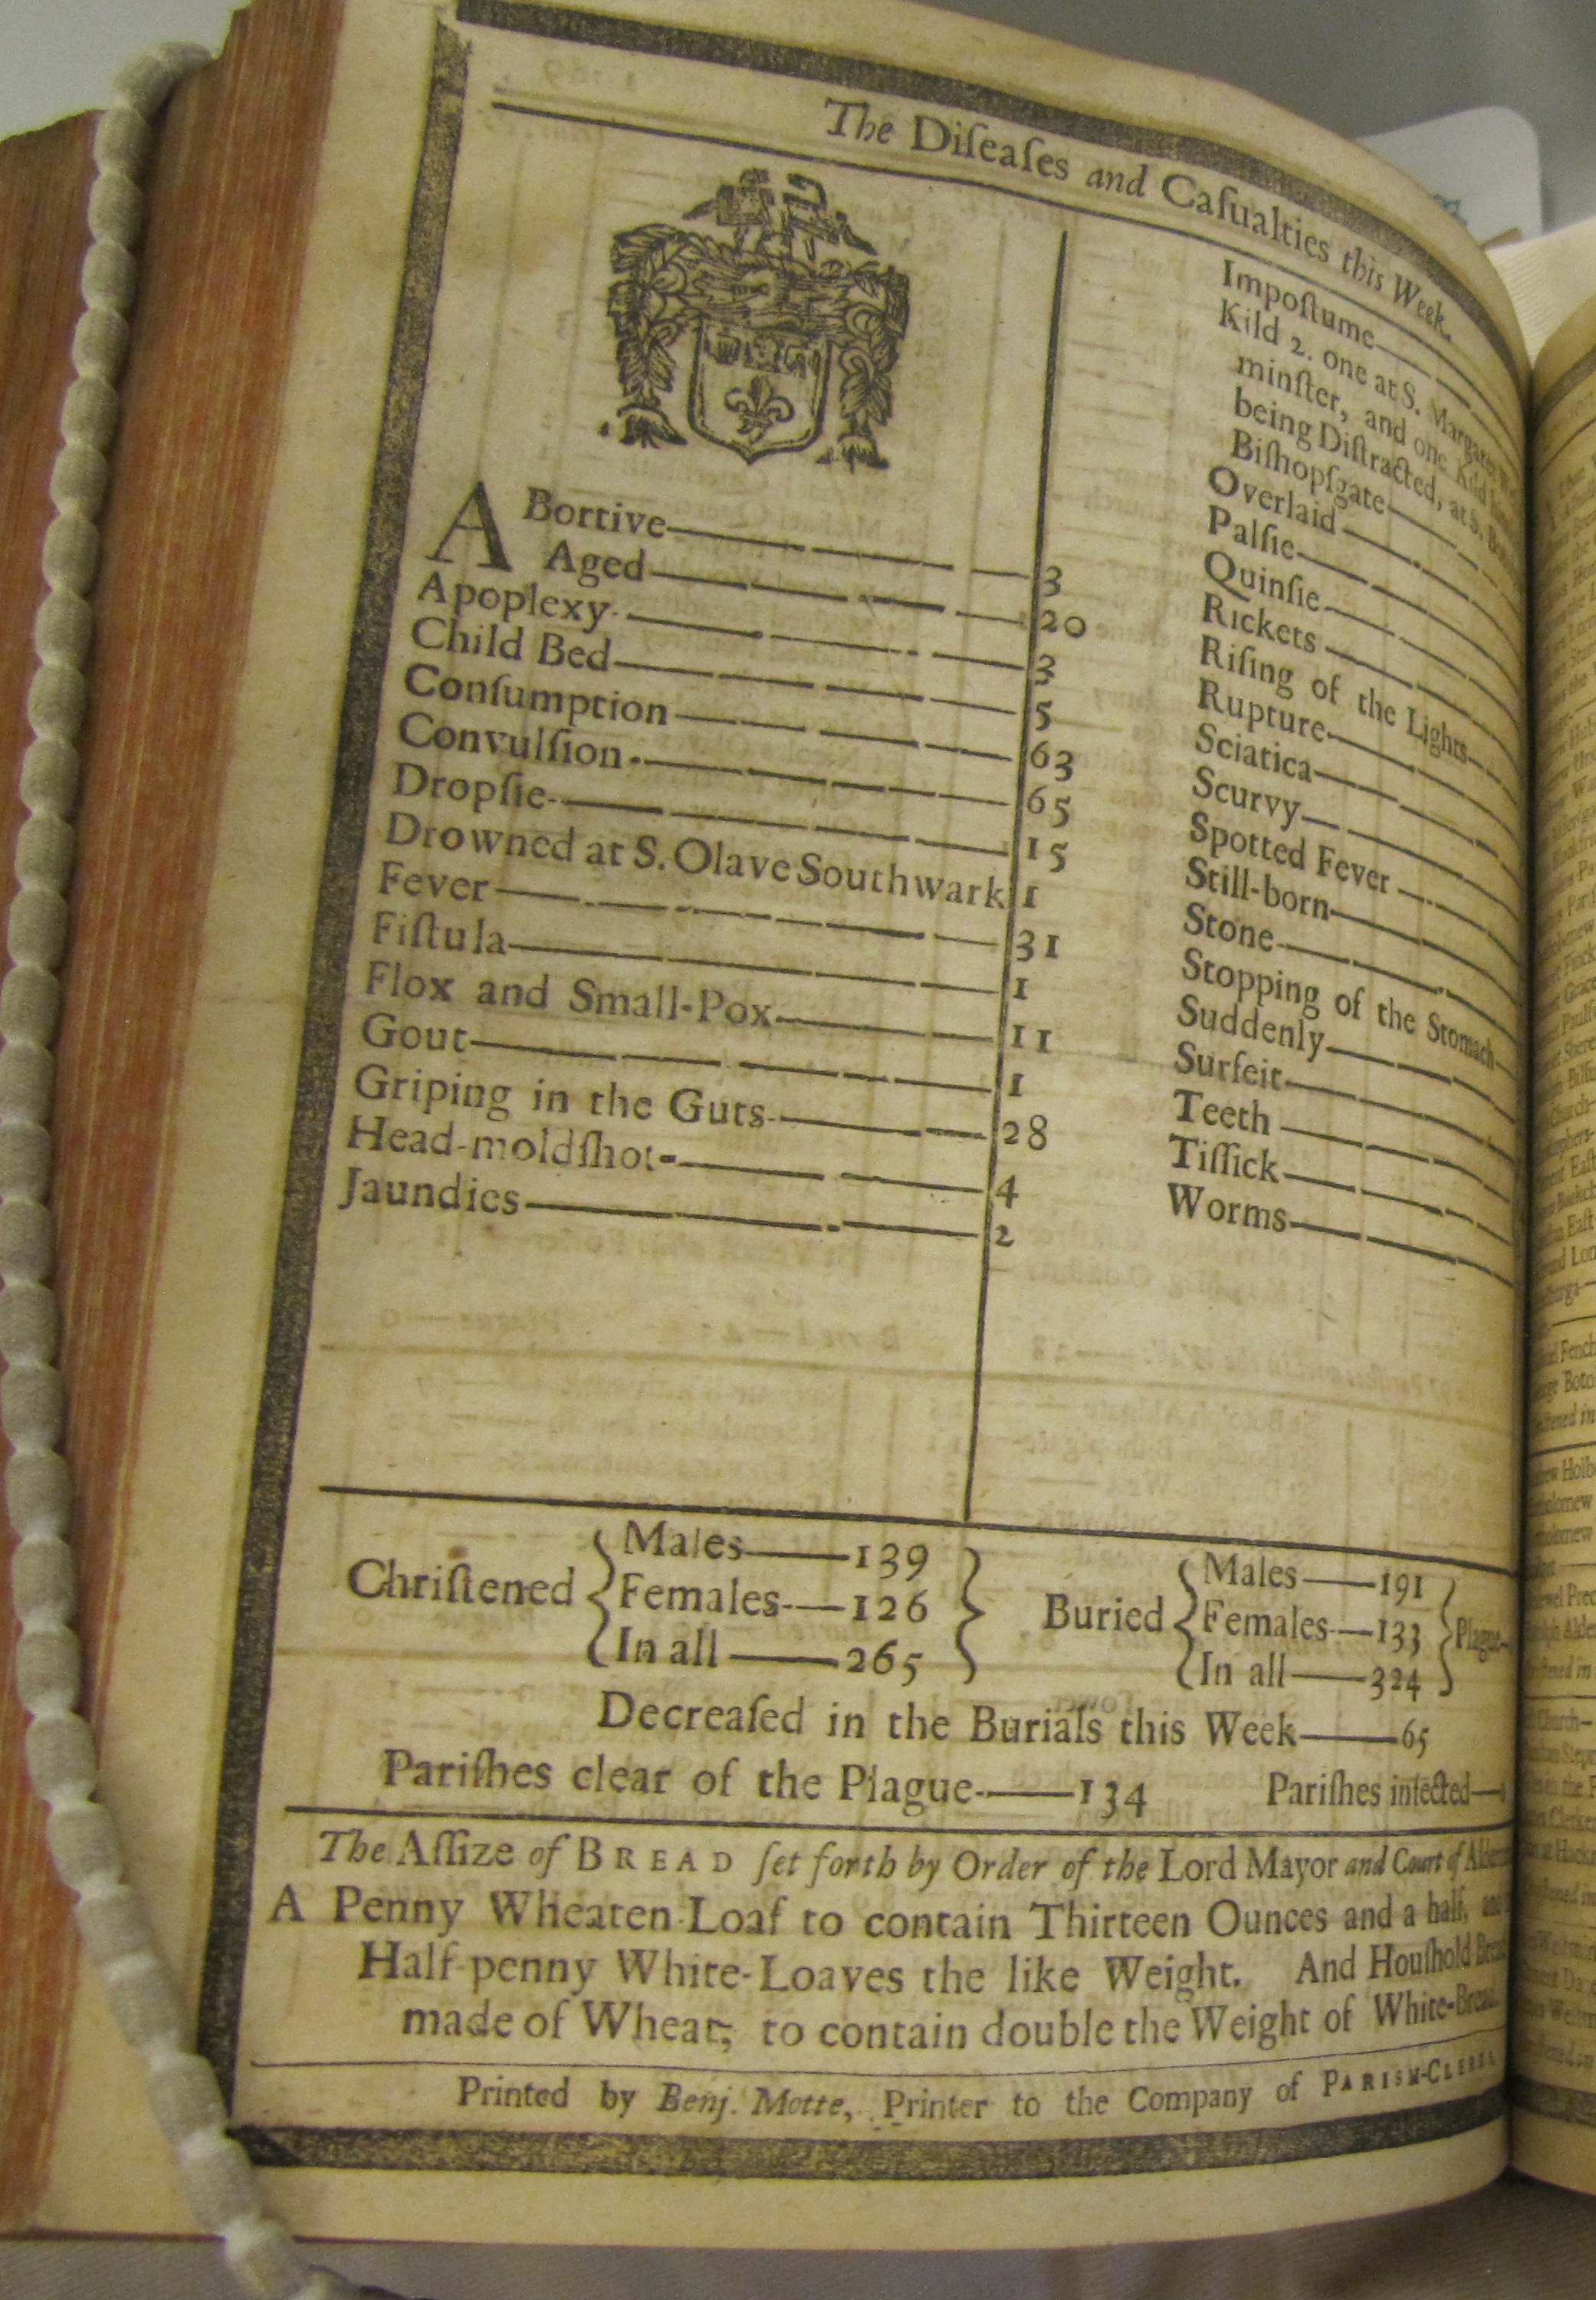 The Diſeaſes and Caſualties this Week.
ABortive 3
Aged 20
Apoplexy 3
Child Bed 5
Conſumption 63
Convulſion 65
Dropſie 15
Drowned at S. Olave Southwark 1
Fever 31
Fiſtula 1
Flox and Small-Pox 11
Gout 1
Griping in the Guts 28
Head-moldſhot 4
Jaundies 2
Impoſtume
Kild 2. one at S. Margaret
minſter, and one Kild
being Diſtracted, at S.
Biſhopſgate
Overlaid
Palſie
Quinſie
Rickets
Riſing of the Lights
Rupture
Sciatica
Scurvy
Spotted Fever
Still-born
Stone
Stopping of the Stomach
Suddenly
Surfeit
Teeth
Tiſſick
Worms
Chriſtened { Males 139
Females 126
In all 265 }
Buried { Males 191
Females 133
In all 324 } Plague
Decreaſed in the Burials this Week 65
Pariſhes clear of the Plague 134 Pariſhes infected
The Aſſize of BREAD ſet forth by Order of the Lord Mayor and Court of
A Penny Wheaten Loaf to contain Thirteen Ounces and a half, and
Half-penny White-Loaves the like Weight. And Houſhold
made of Wheat, to contain double the Weight of White-Bread.
Printed by Benj. Motte, Printer to the Company of PARISH-CLERKS